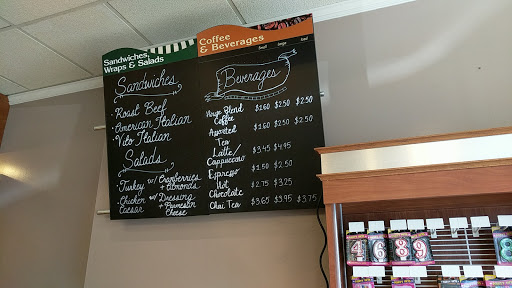 Sandwiches,
Wraps & Salads
Sandwiches
· Roast Beef
· American Italian
· Vito Italian
Salads
· Turkey w/ Cranberries
+ Almonds
· Chicken w/ Dressing
Caesar + Parmesan
Cheese
Coffee
& Beverages
Beverages
Coffee $1.60 $2.50 $2.50
Assorted $1.60 $2.50 $2.50
Tea
Latte/ $3.45 $4.95
Cappuccino
Espresso $1.50 $2.50
Hot $2.75 $3.25
Chocolate
Chai Tea $3.65 $3.95 $3.75
4 6 8 9
8